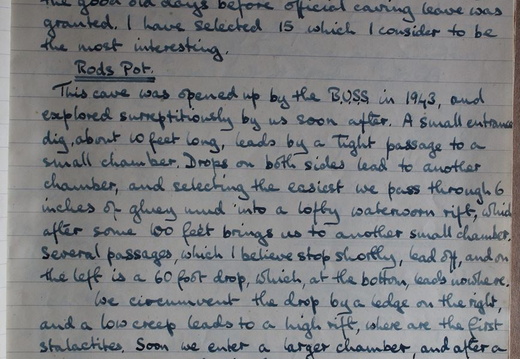 the good old days before official caving leave was
granted. I have selected 15 which I consider to be
the most interesting.
Rods Pot.
This cave was opened up by the B.U.S.S in 1943, and
explored surreptitiously by us soon after. A small entrance
dig, about 10 feet long, leads by a tight passage to a
small chamber. Drops on both sides lead to another
chamber, and selecting the easiest we pass through 6
inches of gluey mud into a lofty waterworn rift, which
after some 100 feet brings us to another small chamber.
Several passages, which I believe stop shortly, lead off, and on
the left is a 60 foot drop, which, at the bottom, leads nowhere.
We circumvent the drop by a ledge on the right,
and a low creep leads to a high rift, where are the first
stalactites. Soon we enter a larger chamber, and after a